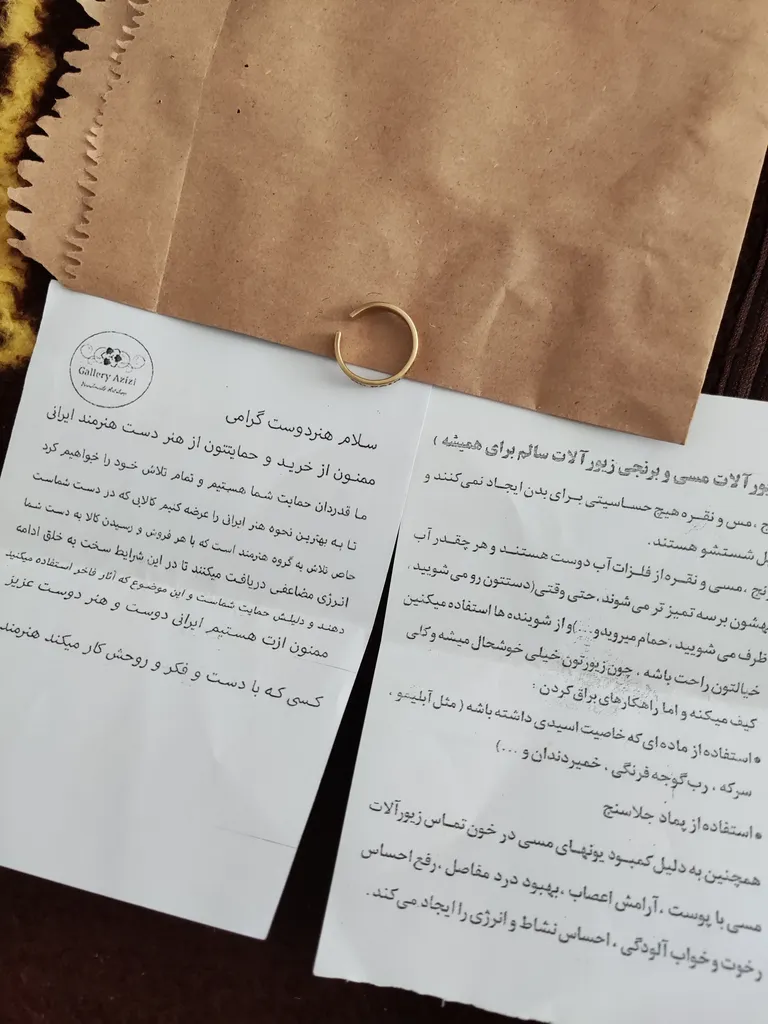 Gallery Azizi
سلام هنردوست گرامی
ممنون از خرید و حمایتتون از هنر دست هنرمند ایرانی
ما قدردان حمایت شما هستیم و تمام تلاش خود را خواهیم کرد
تا به بهترین نحوه هنر ایرانی را عرضه کنیم کالایی که در دست شماست
حاص تلاش یه گروه هنرمند است که با هر فروش و رسیدن کالا به دست شما
انرژی مضاعفی دریافت میکنند تا در این شرایط سخت به خلق ادامه
دهند و دلیلش حمایت شماست و این موضوع که آثار فاخر استفاده میکنید
ممنون ازت هستیم ایرانی دوست و هنر دوست عزیز
کسی که با دست و فکر و روحش کار میکند هنرمند
زیورآلات مسی و برنجی زیورآلات سالم برای همیشه )
، مس و نقره هیچ حساسیتی برای بدن ایجاد نمی‌کنند و
شستشو هستند .
، مسی و نقره از فلزات آب دوست هستند و هر چقدر آب
بهشون برسه تمیز تر می‌شوند، حتی وقتی(دستتون رو می شویید ،
ظرف می شویید ،حمام میرویدو...)و از شوینده ها استفاده میکنین
خیالتون راحت باشه ، چون زیورتون خیلی خوشحال میشه و کلی
کیف میکنه و اما راهکارهای براق کردن :
•استفاده از ماده ای که خاصیت اسیدی داشته باشه ( مثل آبلیمو ،
سرکه ، رب گوجه فرنگی ، خمیردندان و ...)
•استفاده از پماد جلاسنج
همچنین به دلیل کمبود یونهای مسی در خون تماس زیورآلات
مسی با پوست ، آرامش اعصاب ،بهبود درد مفاصل ،رفع احساس
رخوت و خواب آلودگی ، احساس نشاط و انرژی را ایجاد می کند .